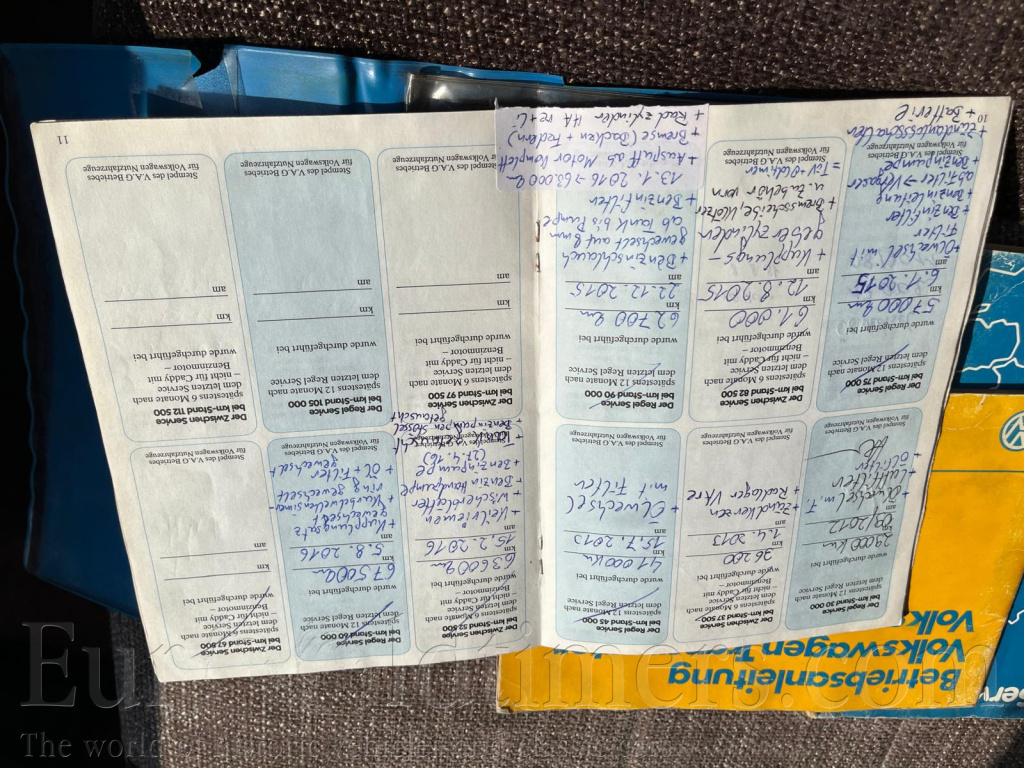 Der Regel Service
bei km-Stand 30 000
spätestens 12 Monate nach
dem letzten Regel Service
wurde durchgeführt bei
29000 km
km
03/2012
am
+ Ölwechsel m. F.
+ Luftfilter
+ Ölfilter
Stempel des V.A.G Betriebes
für Volkswagen Nutzfahrzeuge
Der Zwischen Service
bei km-Stand 37 500
spätestens 6 Monate nach
dem letzten Service
– nicht für Caddy mit
Benzinmotor –
wurde durchgeführt bei
36200
km
1.4.2013
am
+ Zündkerzen
+ Radlager VA re
Stempel des V.A.G Betriebes
für Volkswagen Nutzfahrzeuge
Der Regel Service
bei km-Stand 45 000
spätestens 12 Monate nach
dem letzten Regel Service
wurde durchgeführt bei
41000 km
km
15.7.2013
am
+ Ölwechsel
mit Filter
Stempel des V.A.G Betriebes
für Volkswagen Nutzfahrzeuge
Der Regel Service
bei km-Stand 75 000
spätestens 12 Monate nach
dem letzten Regel Service
wurde durchgeführt bei
57000 km
km
6.1.2015
am
+ Ölwechsel mit
Filter
+ Benzinfilter
+ Benzinleitung
ab Filter → Vergaser
+ Benzinpumpe
Stempel des V.A.G Betriebes
für Volkswagen Nutzfahrzeuge
+ Zündanlassschalter
+ Batterie
10
Der Zwischen Service
bei km-Stand 82 500
spätestens 6 Monate nach
dem letzten Service
– nicht für Caddy mit
Benzinmotor –
wurde durchgeführt bei
61.000
km
12.8.2015
am
+ Kupplungs-
geberzylinder
+ Bremsscheibe, Klötze
u. Zubehör vorn
= TÜV + Oldtimer
Stempel des V.A.G Betriebes
für Volkswagen Nutzfahrzeuge
Der Regel Service
bei km-Stand 90 000
spätestens 12 Monate nach
dem letzten Regel Service
wurde durchgeführt bei
62700 km
km
22.12.2015
am
+ Benzinschlauch
gewechselt auf 8 mm
ab Tank bis Pumpe
+ Benzinfilter
13.1.2016 → 63.000 km
+ Auspuff ab Motor komplett
+ Bremse (Backen + Federn)
+ Radzylinder HA re + Li
Der Zwischen Service
bei km-Stand 52 500
spätestens 6 Monate nach
dem letzten Service
– nicht für Caddy mit
Benzinmotor –
wurde durchgeführt bei
63600 km
km
15.2.2016
am
+ Keilriemen
+ Wischerblätter
+ Benzin Handpumpe
+ Benzinpumpe
(27.4.16)
+ Benzinpumpen Stössel
getauscht
Der Regel Service
bei km-Stand 60 000
spätestens 12 Monate nach
dem letzten Regel Service
wurde durchgeführt bei
67500 km
km
5.8.2016
am
+ Kupplungssatz
gewechselt
+ Kurbelwellensimmer
ring gewechselt
+ Öl + Filter
gewechselt
Stempel des V.A.G Betriebes
für Volkswagen Nutzfahrzeuge
Der Zwischen Service
bei km-Stand 67 500
spätestens 6 Monate nach
dem letzten Service
– nicht für Caddy mit
Benzinmotor –
wurde durchgeführt bei
km
am
Stempel des V.A.G Betriebes
für Volkswagen Nutzfahrzeuge
Der Zwischen Service
bei km-Stand 97 500
spätestens 6 Monate nach
dem letzten Service
– nicht für Caddy mit
Benzinmotor –
wurde durchgeführt bei
km
am
Stempel des V.A.G Betriebes
für Volkswagen Nutzfahrzeuge
Der Regel Service
bei km-Stand 105 000
spätestens 12 Monate nach
dem letzten Regel Service
wurde durchgeführt bei
km
am
Stempel des V.A.G Betriebes
für Volkswagen Nutzfahrzeuge
Der Zwischen Service
bei km-Stand 112 500
spätestens 6 Monate nach
dem letzten Service
– nicht für Caddy mit
Benzinmotor –
wurde durchgeführt bei
km
am
Stempel des V.A.G Betriebes
für Volkswagen Nutzfahrzeuge
11
Betriebsanleitung
Volkswagen
Volk
Serv
The world